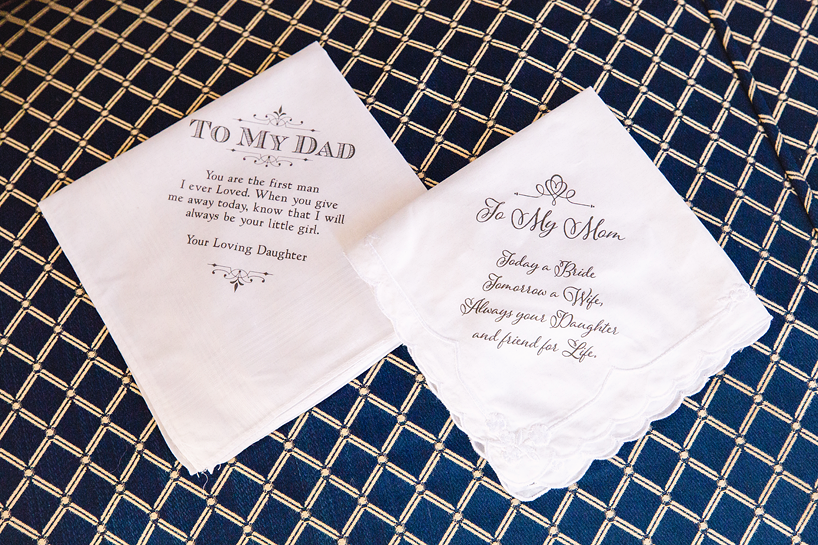 To My Dad
You are the first man
I ever Loved. When you give
me away today, know that I will
always be your little girl.
Your Loving Daughter
To My Mom
Today a Bride
Tomorrow a Wife,
Always your Daughter
and friend for Life.